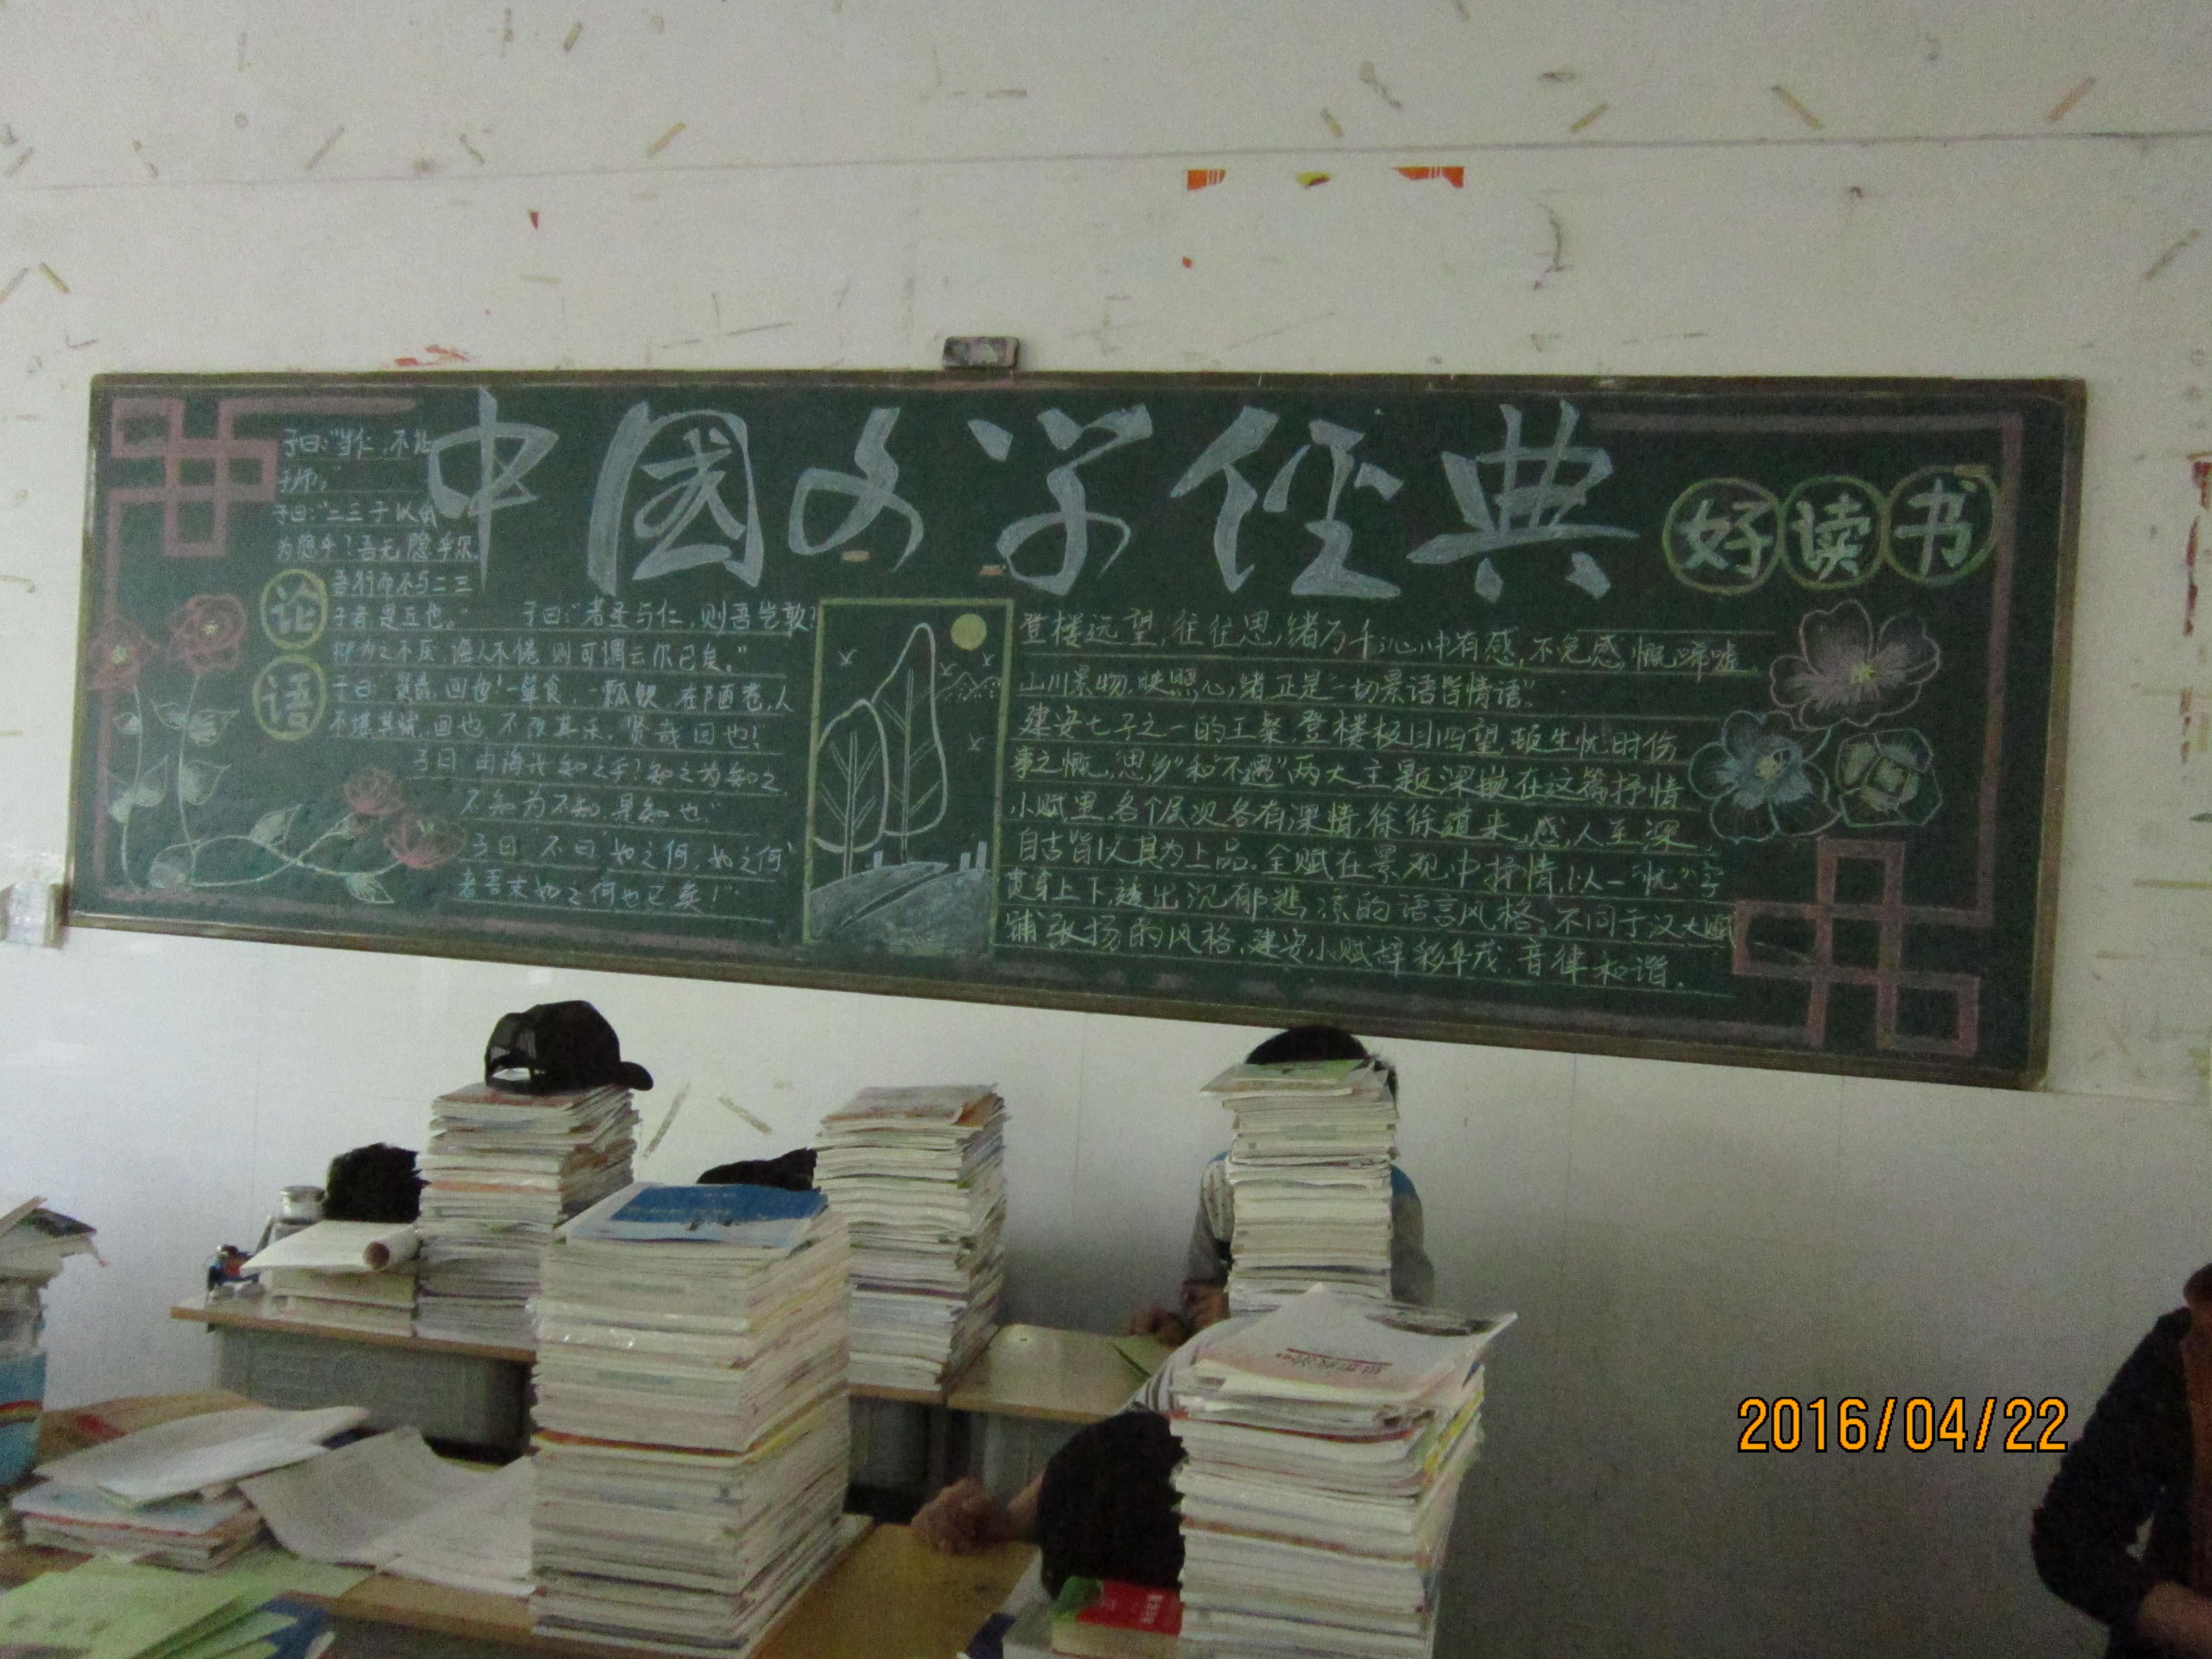 中國文学经典
好读书
论语
子曰:"当仁,不让
于师。"
子曰:"二三子以我
为隐乎?吾无隐乎尔。
吾行而不与二三
子者,是丘也。"
子曰:"若圣与仁,则吾岂敢!
抑为之不厌,诲人不倦,则可谓云尔已矣。"
子曰:"贤哉,回也!一箪食,一瓢饮,在陋巷,人
不堪其忧,回也不改其乐。贤哉回也!
子曰:由诲女知之乎?知之为知之,
不知为不知,是知也"
子曰"不曰'如之何,如之何'
者吾末如之何也已矣!"
登楼远望,往往思绪万千,心中有感,不免感慨唏嘘,
山川景物,映照心绪,正是"一切景语皆情语"。
建安七子之一的王粲登楼极目四望,顿生忧时伤
事之慨,"思乡"和"不遇"两大主题深嵌在这篇抒情
小赋里,各个层次各有深情,徐徐道来,感人至深,
自古皆以其为上品。全赋在景观中抒情,以一"忧"字
贯穿上下,透出沉郁悲凉的语言风格。不同于汉大赋
铺张扬的风格,建安小赋辞彩华茂,音律和谐.
2016/04/22